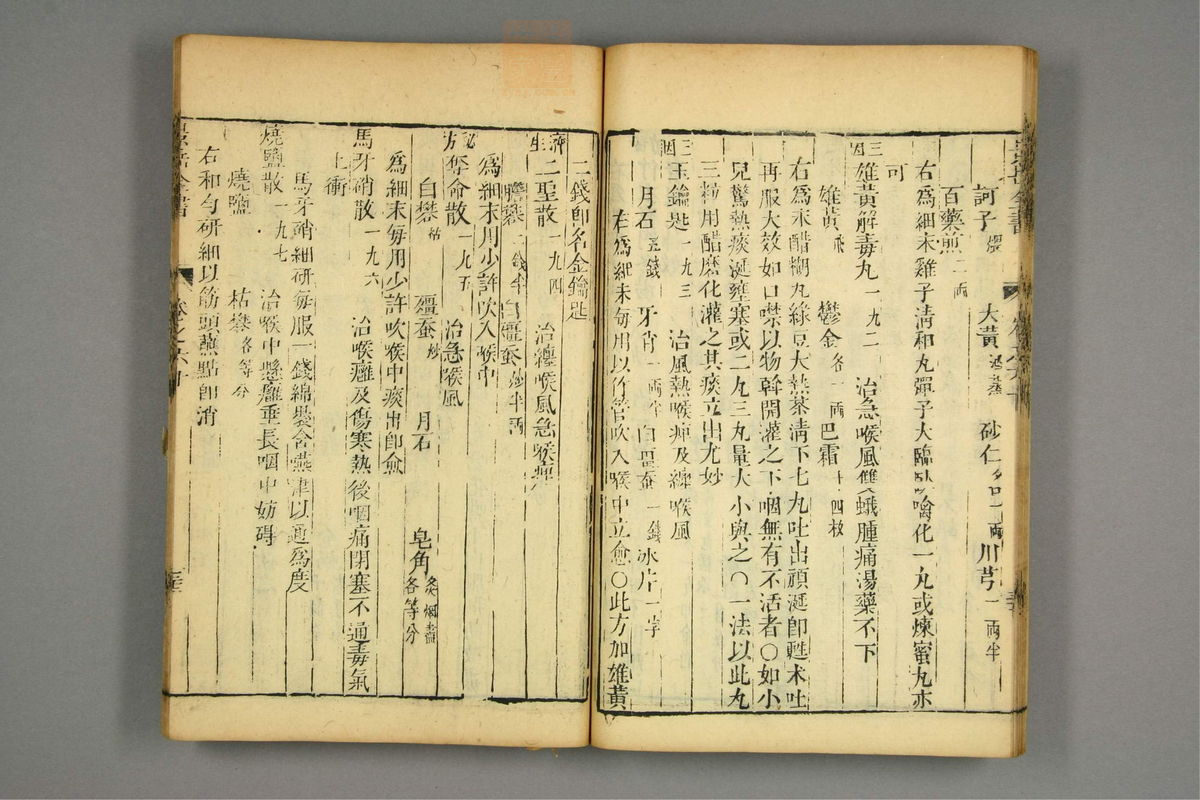 訶子煨 大黃酒蒸 砂仁各一兩 川芎一兩半
百藥煎二兩
右爲細末雞子清和丸彈子大臨臥噙化一丸或煉蜜丸亦
可
三因 雄黃解毒丸一九二 治急喉風雙蛾腫痛湯藥不下
雄黃飛 鬱金各一兩 巴霜十四枚
右爲末醋糊丸綠豆大熱茶清下七丸吐出頑涎卽甦未吐
再服大效如口噤以物斡開灌之下咽無有不活者○如小
兒驚熱痰涎壅塞或二丸三丸量大小與之○一法以此丸
三粒用醋磨化灌之其痰立出尤妙
三因 玉鑰匙一九三 治風熱喉痺及纏喉風
月石五錢 牙硝一兩半 白殭蚕一錢 冰片一字
右爲細末每用以竹管吹入喉中立愈○此方加雄黃
二錢卽名金鑰匙
濟生 二聖散一九四 治纏喉風急喉痺
膽礬二錢半 白殭蚕炒半兩
爲細末用少許吹入喉中
秘方 奪命散一九五 治急喉風
白礬枯 殭蚕炒 月石 皂角炙烟盡各等分
爲細末每用少許吹喉中痰出卽愈
馬牙硝散一九六 治喉癰及傷寒熱後咽痛閉塞不通毒氣
上衝
馬牙硝細研每服一錢綿裴含嚥津以通爲度
燒鹽散一九七 治喉中懸癰垂長咽中妨碍
燒鹽 枯礬各等分
右和勻研細以筯頭蘸點卽消